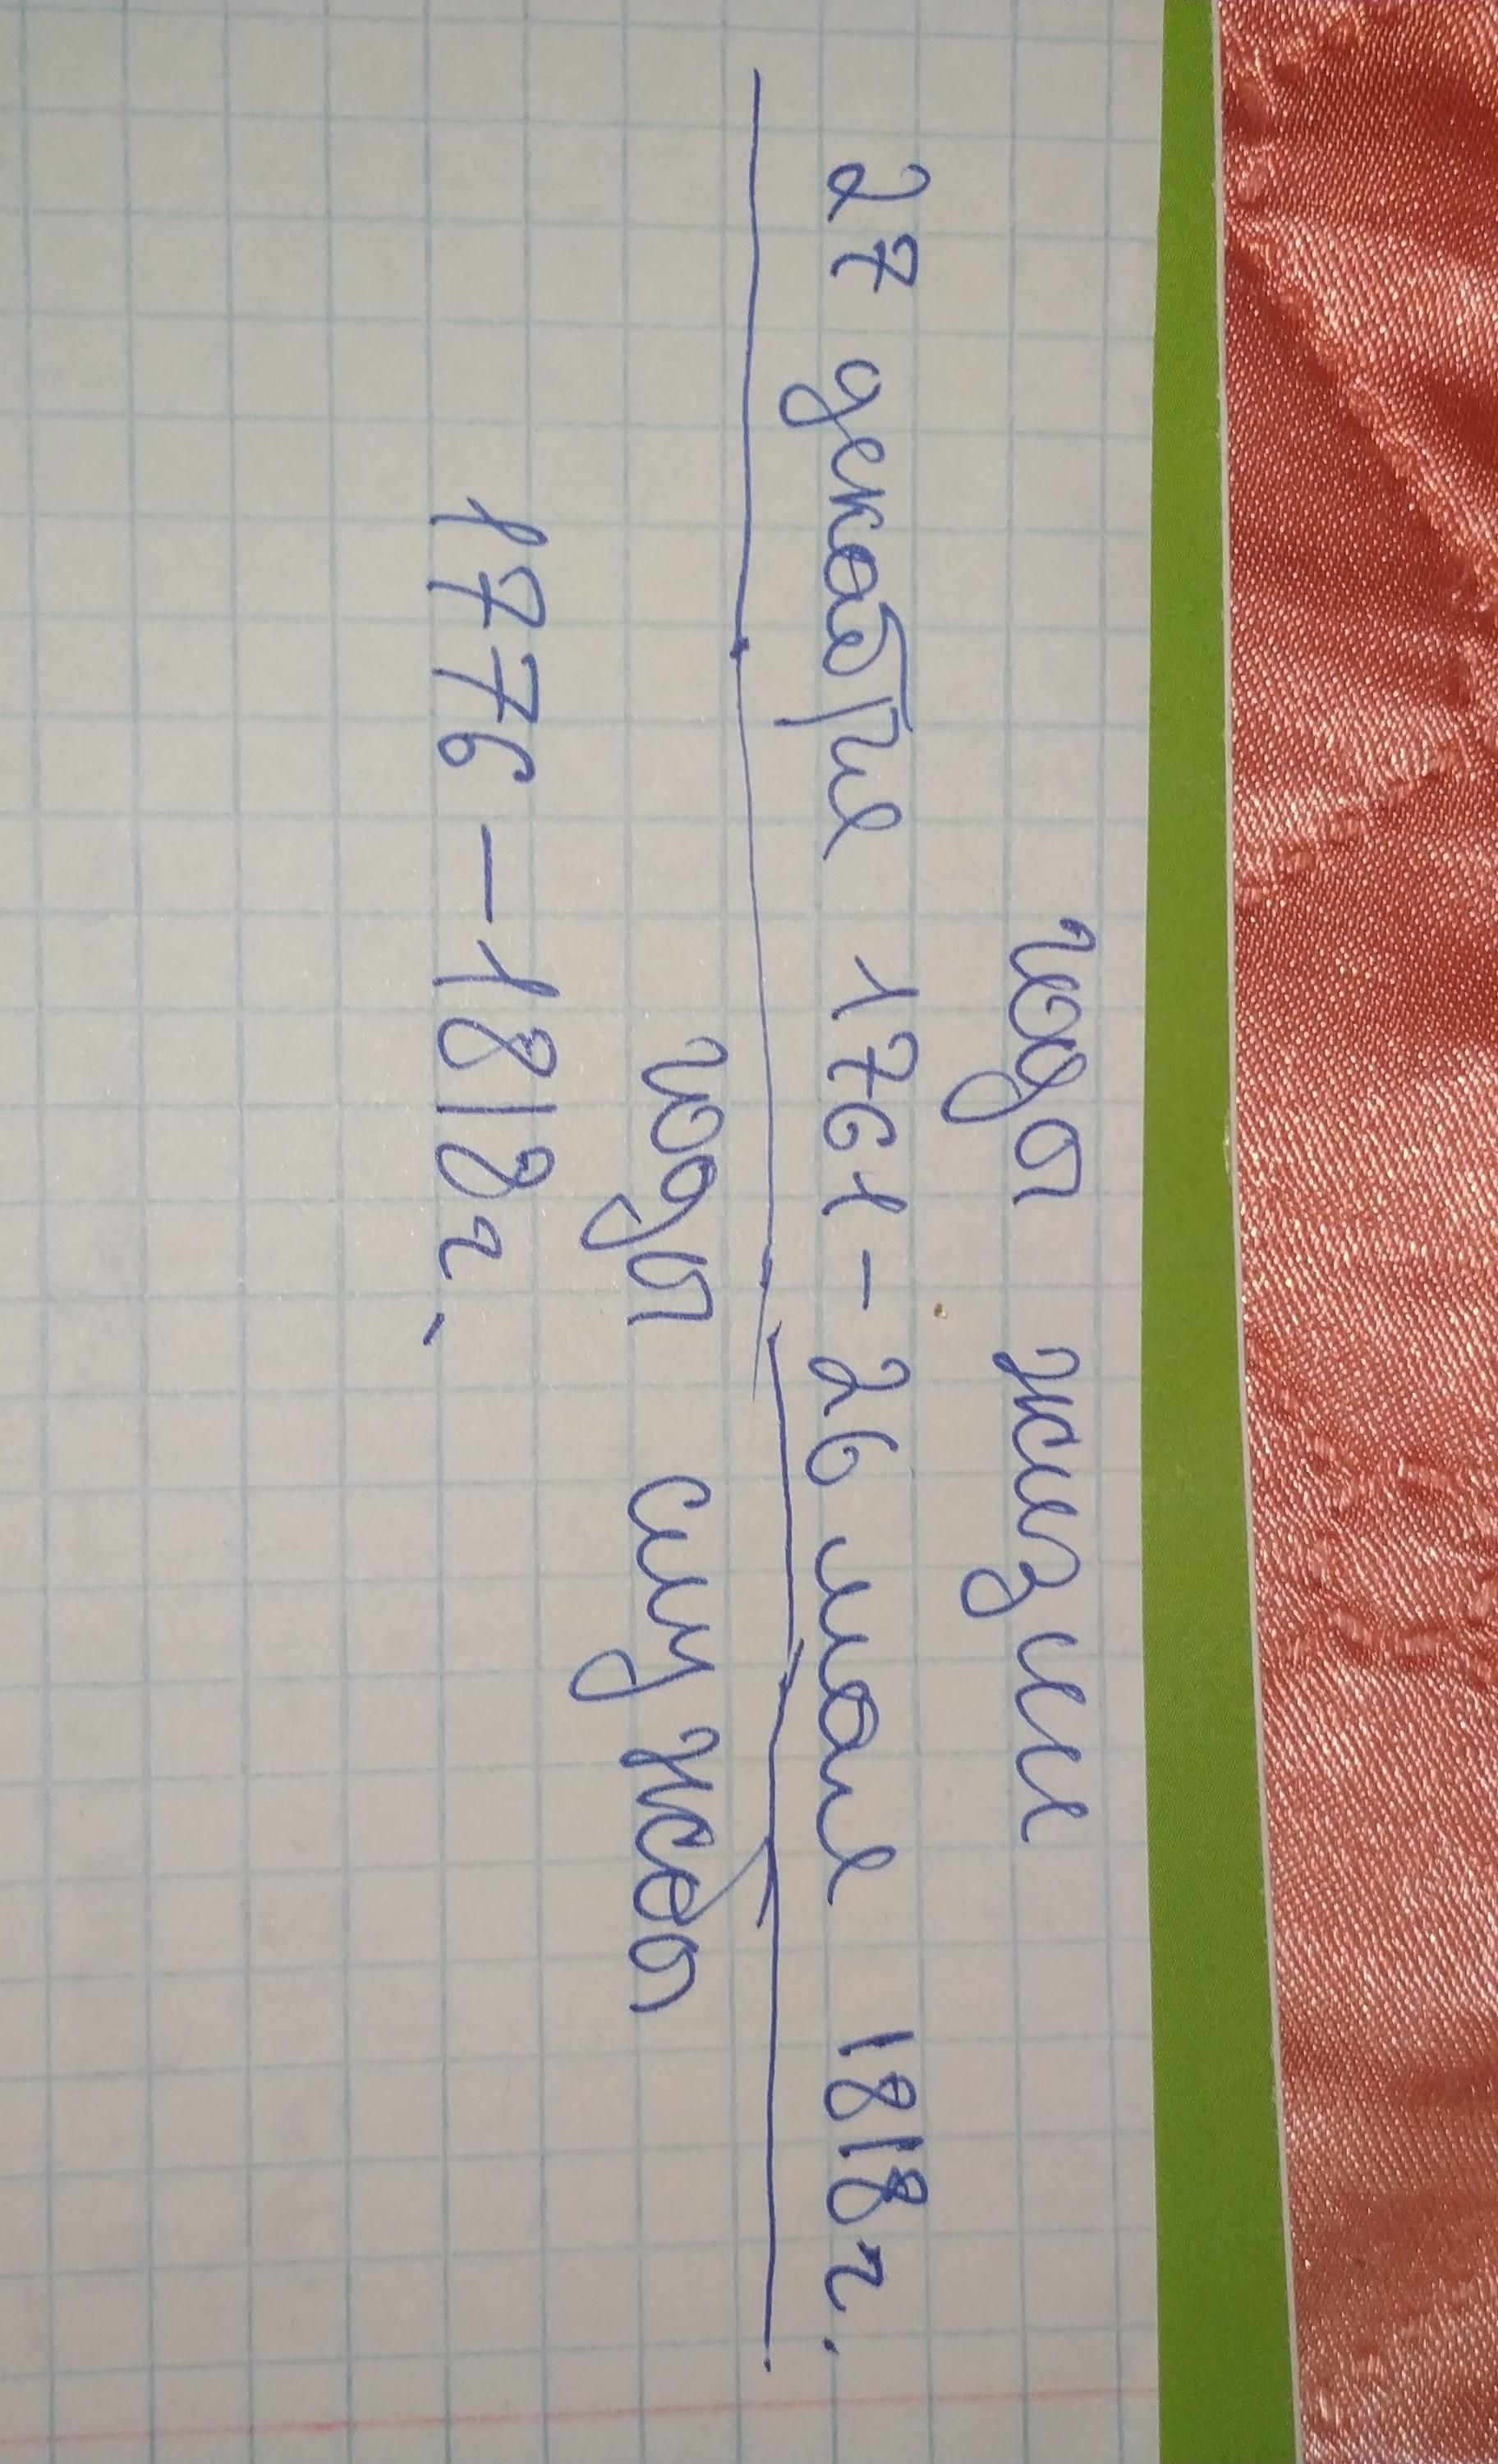 года жизни
27 декабря 1761 - 26 мая 1818г.
года служба
1776 - 1818г.